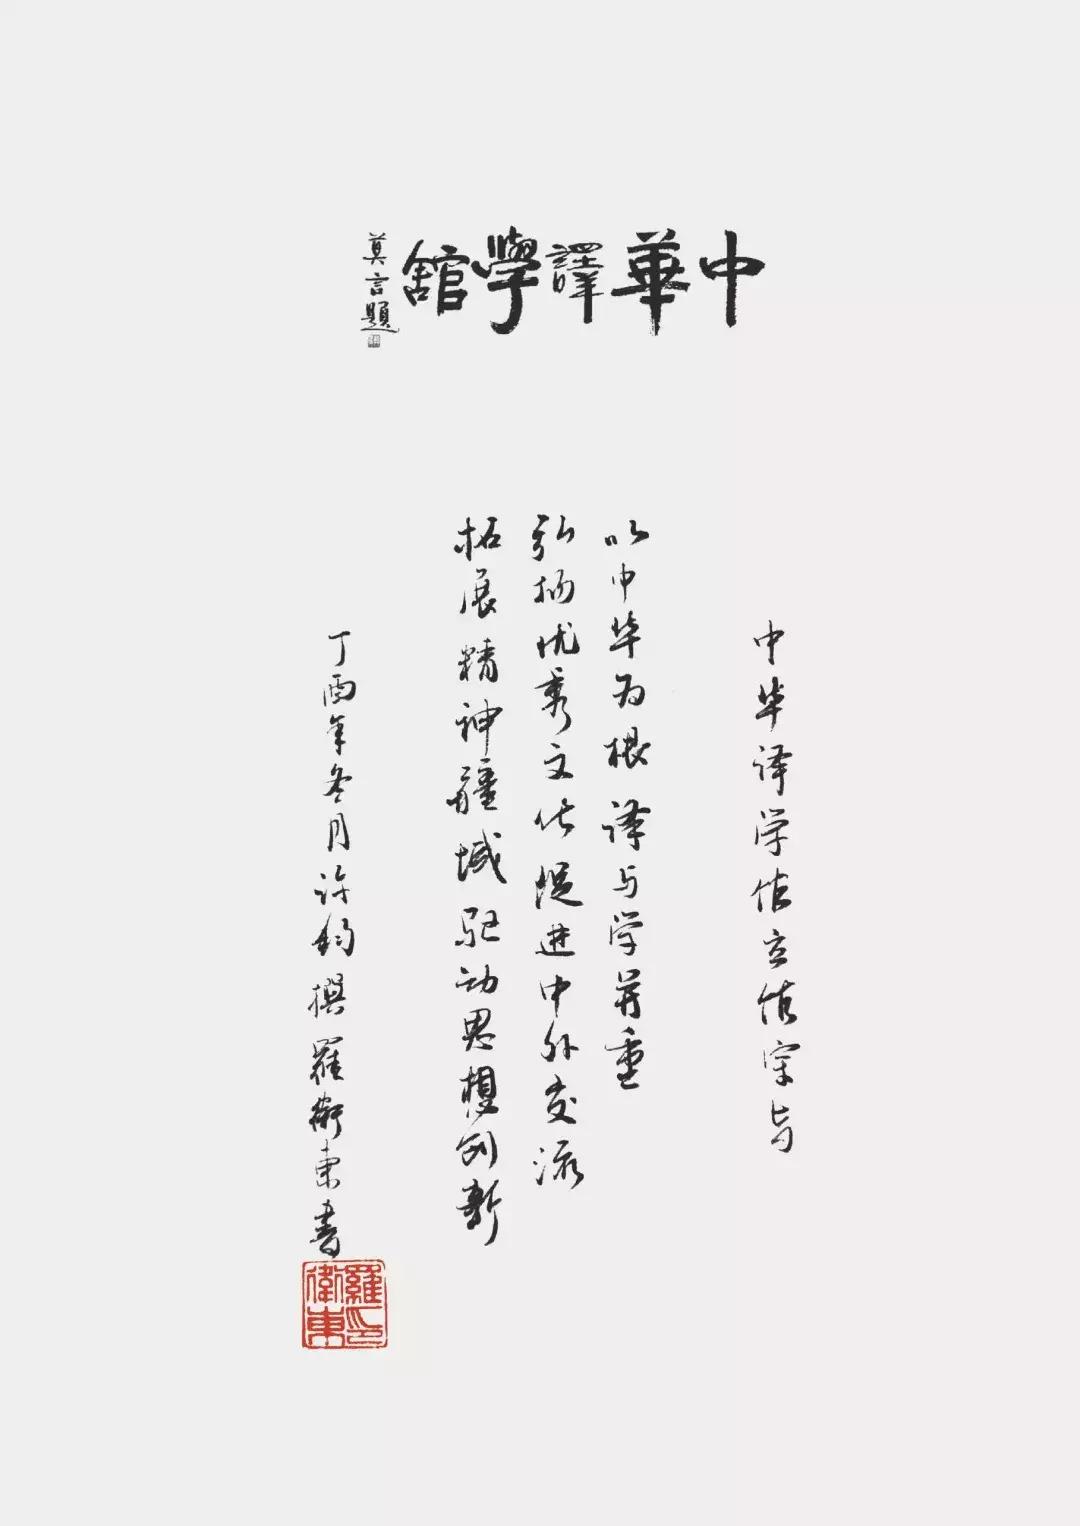 中華譯學舘
莫言題
中华译学馆立馆宗旨
以中华为根 译与学并重
弘扬优秀文化 促进中外交流
拓展精神疆域 驱动思想创新
丁酉年冬月许钧撰 羅衛東书
羅印衛東